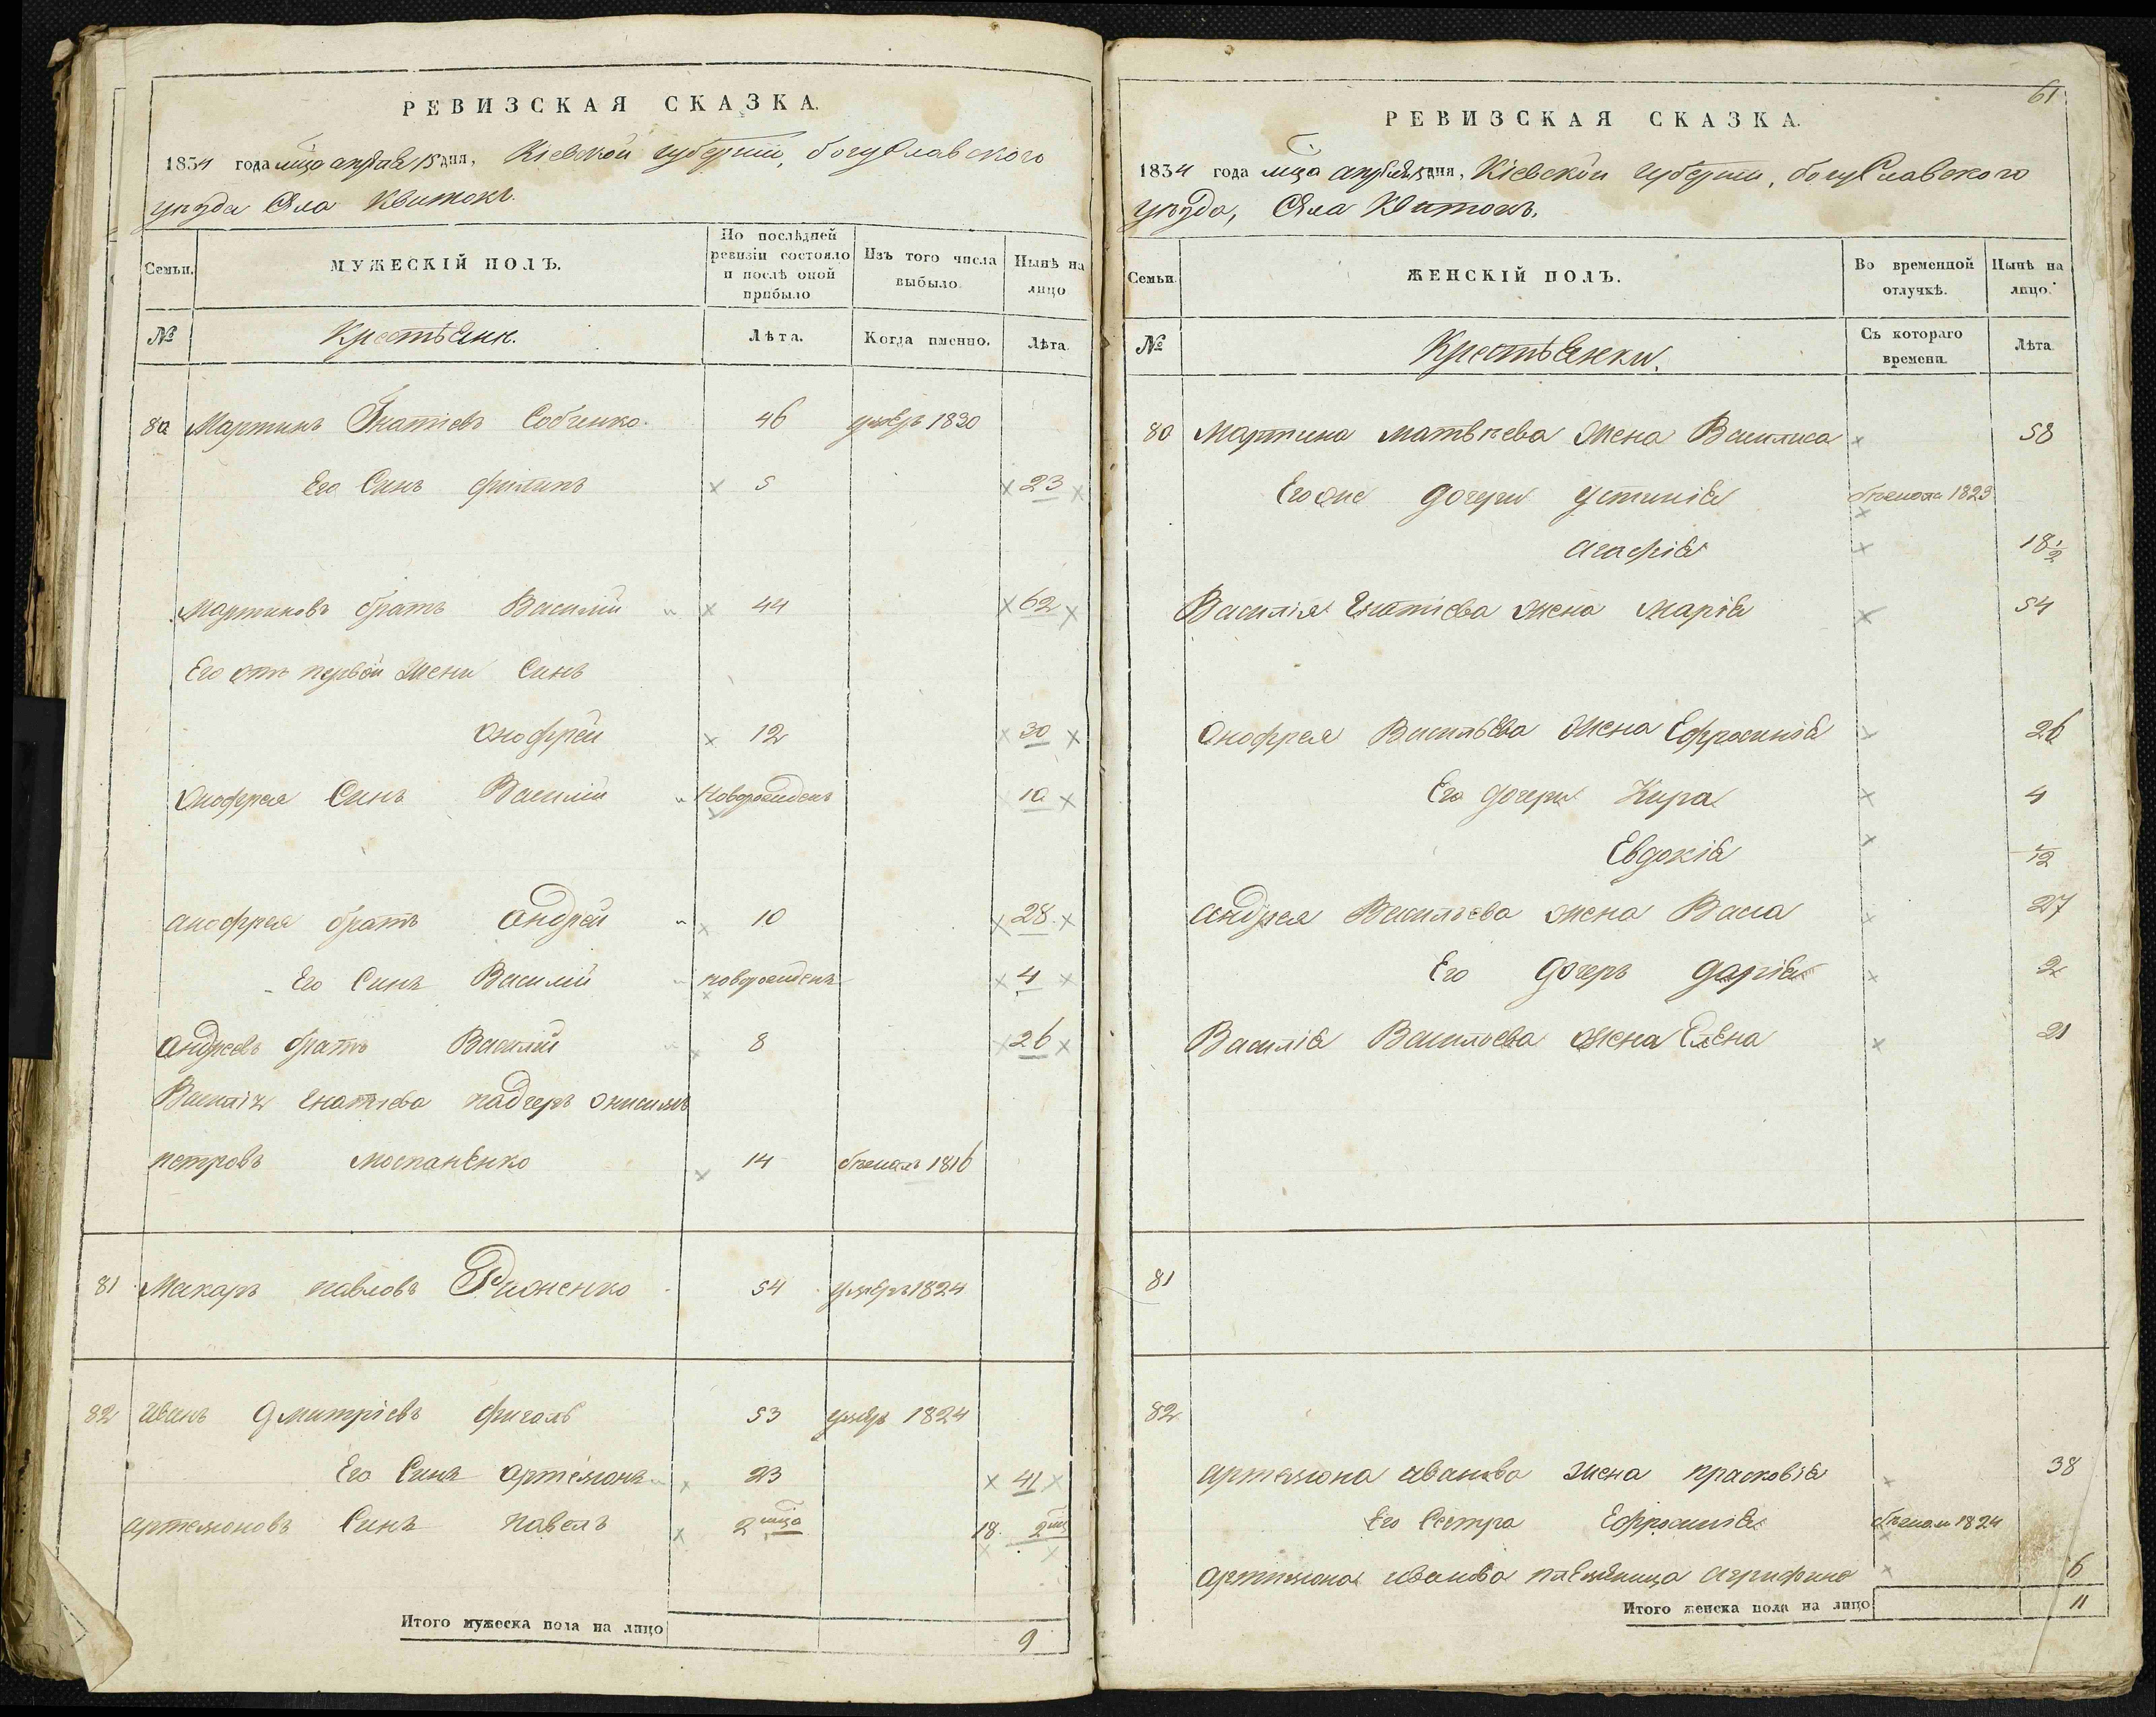 РЕВИЗСКАЯ СКАЗКА.
1834 года мца апреля 15 дня, Кіевской губерніи, богуславского
уезда Села Квитокъ.
Семьи.
МУЖЕСКІЙ ПОЛЪ.
По послѣдней ревизіи состояло и послѣ оной прибыло
Изъ того числа выбыло.
Нынѣ на лицо
№
Крестьяне.
Лѣта.
Когда именно.
Лѣта.
80 Мартинъ Гнатіевъ Собченко. 46 умеръ 1830
Его Синъ филипъ 5 23
Мартиновъ братъ Василій 44 62
Его отъ первой Жени Синъ
Онофрей 12 30
Онофрея Синъ Василій Новорожденъ 10
Анофрея братъ Андрей 10 28
Его Синъ Василій новорожденъ 4
Андреевъ братъ Василій 8 26
Василія Гнатіева падчеръ Онисимъ
петровъ Моспаненко 14 бежалъ 1816
81 Макаръ павловъ 54 умеръ 1824
82 Иванъ Дмитріевъ фиголь 53 умеръ 1824
Его Синъ Артемонъ 23 41
Артемоновъ Синъ Павелъ 2 мца 18. 2 мц
Итого мужеска пола на лицо 9
61
РЕВИЗСКАЯ СКАЗКА.
1834 года мца апреля 15 дня, Кіевской губерніи, богуславского
уезда, Села Квитокъ.
Семьи.
ЖЕНСКІЙ ПОЛЪ.
Во временной отлучкѣ.
Нынѣ на лицо.
№
Крестьянки.
Съ котораго времени.
Лѣта.
80 Мартина матвеева Жена Василиса 58
Его дочери Устинія бежала 1823
Агафія 18 1/2
Василія Гнатіева Жена Марія 54
Онофрея Васильева Жена Ефросинія 26
Его дочери Кира 4
Евдокія 1/12
Андрея Васильева Жена Васа 27
Его Дочеръ Дарія 2
Василія Васильева Жена Елена 21
81
82
Артемона иванова Жена прасковія 38
Его Сестра Ефросинія бежала 1824
Артемона иванова племяница Агрифина 6
Итого женска пола на лицо 11